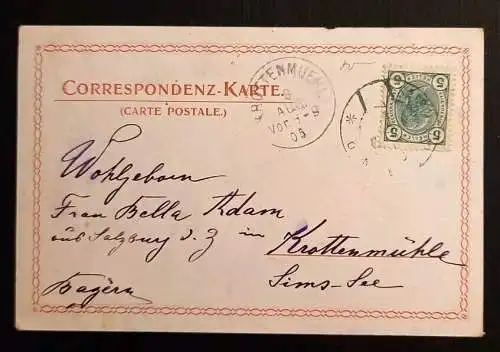 CORRESPONDENZ-KARTE.
(CARTE POSTALE.)
KROTTENMUEHL
8
AUG.
VOR. 8-9
05
5 5
5 5
Wohlgeborn
Frau Bella Adam
aus Salzburg d. Z im Krottenmühle
Sims-See
Bayern